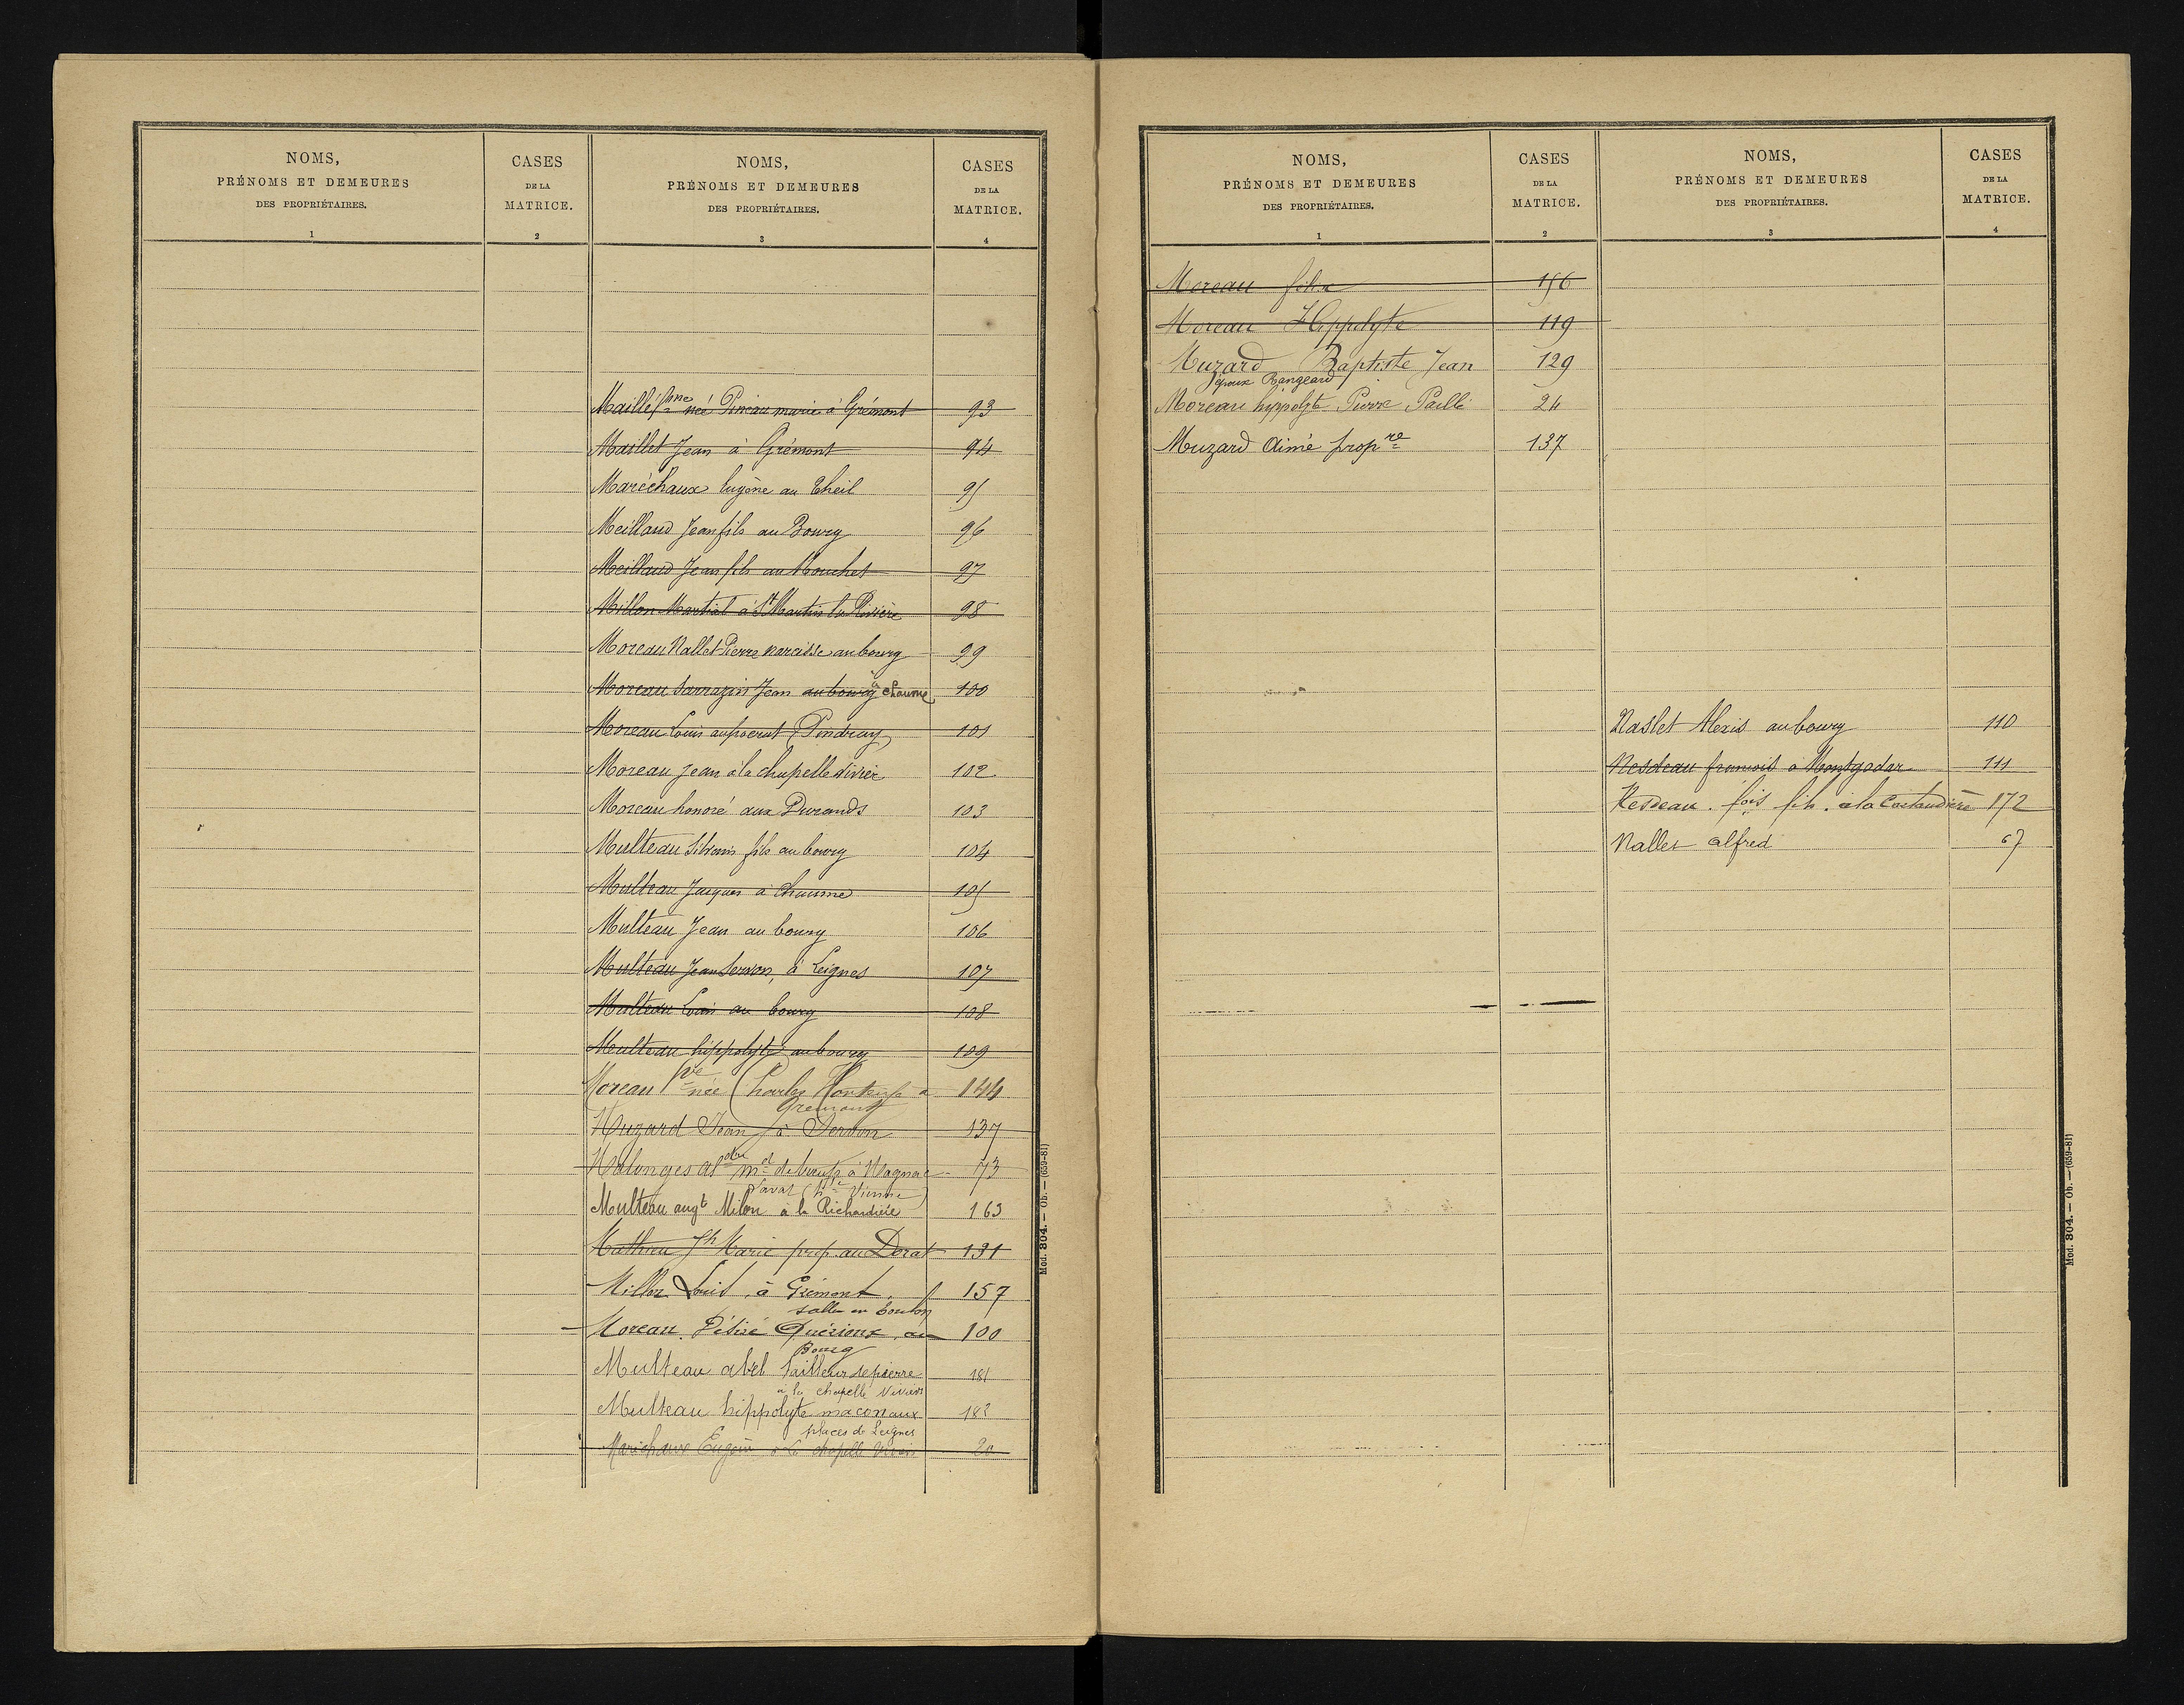 NOMS,
PRÉNOMS ET DEMEURES
DES PROPRIÉTAIRES.
1
CASES
DE LA
MATRICE.
2
NOMS,
PRÉNOMS ET DEMEURES
DES PROPRIÉTAIRES.
3
CASES
DE LA
MATRICE.
4
Maillé fme née Pineau marie à Grémont 93
Maillet Jean à Grémont 94
Maréchaux Eugène au Theil 95
Meillaud Jean fils au Bourg 96
Meillaud Jean fils au Mouchet 97
Millon Martial à St Martin la Rivière 98
Moreau Nallet Pierre narcisse au bourg 99
Moreau Sarrazin Jean au bourg à chaume 100
Moreau Louis Pindray 101
Moreau Jean à la chapelle Vivier 102
Moreau honoré aux Durands 103
Multeau fils au bourg 104
Multeau Jacques à Chaume 105
Multeau Jean au bourg 106
Multeau Jean Servon, à Leignes 107
Multeau Louis au bourg 108
Multeau hippolyte au bourg 109
Moreau Vve née Charles à 144
Gremont
Muzard Jean à Servon 137
Malonges md de bœufs à Magnac 73
Laval (hte Vienne)
Multeau augte Milon à la Richardière 163
Mathieu Jh Marie prop. au Derat 131
Millon Louis, à Grémont. 157
salle en Toulon
Moreau. Désiré Quérioux, au 100
Bourg
Multeau abel tailleur de pierre 181
à la chapelle Viviers
Multeau hippolyte maçon aux 182
places de Leignes
Marichaux Eugène à la chapelle Vivier 20
Mod. 304. — Ob. — (659-81)
NOMS,
PRÉNOMS ET DEMEURES
DES PROPRIÉTAIRES.
1
CASES
DE LA
MATRICE.
2
NOMS,
PRÉNOMS ET DEMEURES
DES PROPRIÉTAIRES.
3
CASES
DE LA
MATRICE.
4
Moreau félix 156
Moreau Hippolyte 119
Muzard Baptiste Jean 129
époux Rangeard
Moreau hippolyte Pierre Paillé 24
Muzard Aimé propre 137
Naslet Alexis au bourg 110
Nesdeau francois a Montgodar 111
Nesdeau. fois fils. à la Castaudière 172
Nallet alfred 67
Mod. 304. — Ob. — (659-81)